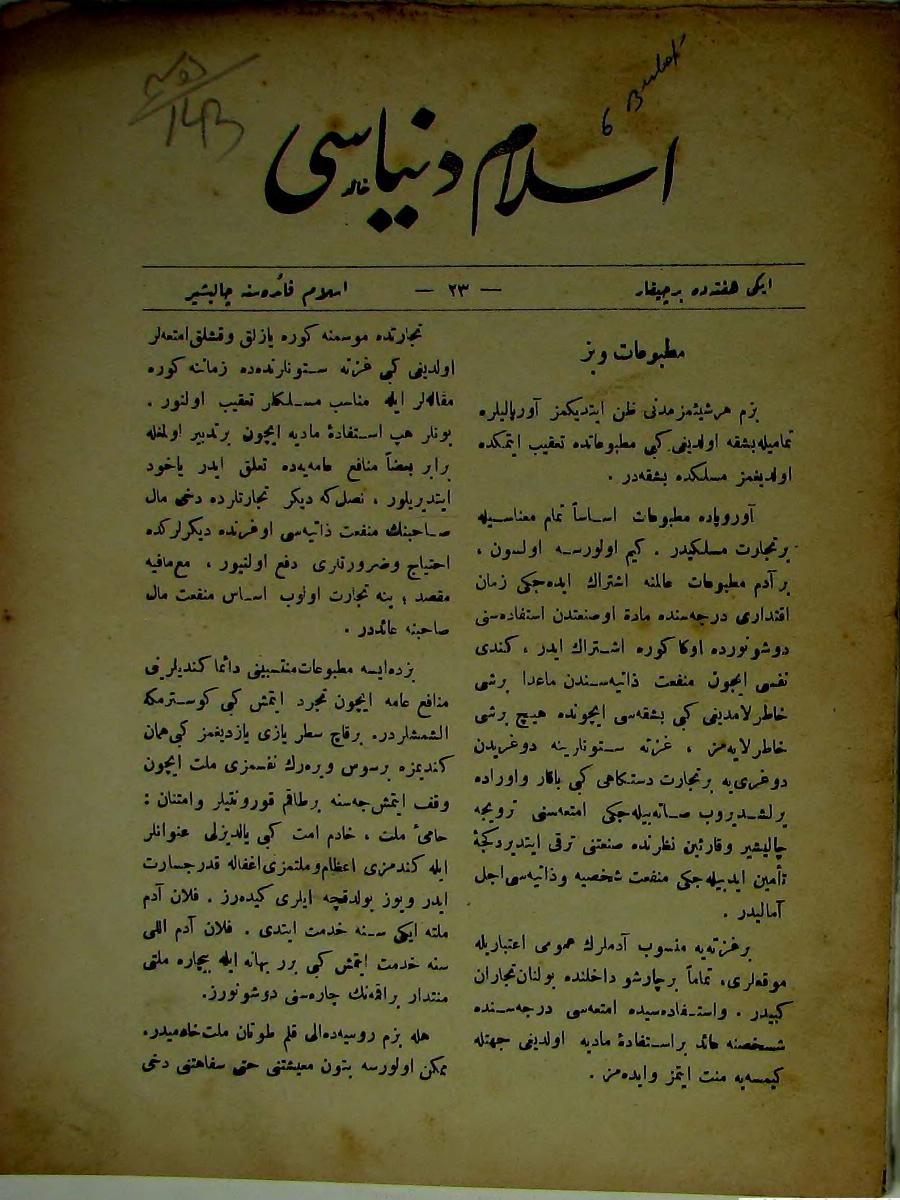 اسلام دنیاسی
ایکی هفته‌ده بر چیقار
— ٢٣ —
اسلام فائده‌سنه چالیشیر
مطبوعات وبز
بزم هر شیئمز مدنی ظن ایتدیکمز آورپالیلره
تمامیله بشقه اولدیغی کبی مطبوعاتده تعقیب ایتمکده
اولدیغمز مسلکده بشقه‌در .
آوروپاده مطبوعات اساساً تمام معناسیله
بر تجارت مسلکیدر . کیم اولورسه اولسون ،
بر آدم مطبوعات عالمنه اشتراك ایده‌جکی زمان
اقتداری درجه‌سنده مادة اوصنعتدن استفاده‌سنی
دوشونورده اوکا کوره اشتراك ایدر ، کندی
نفسی ایچون منفعت ذاتیه‌سندن ماعدا برشی
خاطرلامدیغی کبی بشقه‌سی ایچونده هیچ برشی
خاطرلایه‌مز ، غزته ستونلرینه دوغریدن
دوغری‌یه بر تجارت دستکاهی کبی باقار واوراده
یرلشدیروب صاته‌بیله‌جکی امتعه‌سنی ترویجه
چالیشیر وقارئین نظرنده صنعتنی ترقی ایتدیردکجه
تأمین ایدبیله‌جکی منفعت شخصیه وذاتیه‌سی اجل
آمالیدر .
بر غزته‌یه منسوب آدملرك عمومی اعتباریله
موقعلری، تماماً بر چارشو داخلنده بولنان تجاران
کبیدر . واستفاده‌سیده امتعه‌سی درجه‌سنده
شخصنه عائد بر استفادۀ مادیه اولدیغی جهتله
کیمسه‌یه منت ایتمز وایده‌مز .
تجارتده موسمنه کوره یازلق وقشلق امتعه‌لر
اولدیغی کبی غزته ستونلرنده‌ده زماننه کوره
مقاله‌لر ایله مناسب مسلکلر تعقیب اولنور .
بونلر هپ استفادۀ مادیه ایچون بر تدبیر اولمغله
برابر بعضاً منافع عامه‌یه‌ده تعلق ایدر یاخود
ایتدیریلور ، نصل‌که دیکر تجارتلرده دخی مال
صاحبنك منفعت ذاتیه‌سی اوغرنده دیکرلرکده
احتیاج وضرورتلری دفع اولنیور ، مع‌مافیه
مقصد ؛ ینه تجارت اولوب اساس منفعت مال
صاحبنه عائددر .
بزده‌ایسه مطبوعات منتسبینی دائما کندیلرینی
منافع عامه ایچون تجرد ایتمش کبی کوسترمکه
الشمشلردر. برقاچ سطر یازی یازدیغمز کبی همان
کندیمزه برسوس ویره‌رك نفسمزی ملت ایچون
وقف ایتمش‌جه‌سنه برطاقم قورونتیلر وامتنان :
حامیٔ ملت ، خادم امت کبی یالدیزلی عنوانلر
ایله کندمزی اعظام وملتمزی اغفاله قدر جسارت
ایدر ویوز بولدقچه ایلری کیده‌رز . فلان آدم
ملته ایکی سنه خدمت ایتدی . فلان آدم اللی
سنه خدمت ایتمش کبی برر بهانه ایله بیچاره ملتی
منتدار براقمه‌نك چاره‌سنی دوشونورز.
هله بزم روسیه‌ده‌الی قلم طوتان ملت‌خاه‌میدر.
ممکن اولورسه بتون معیشتنی حتی سفاهتنی دخی